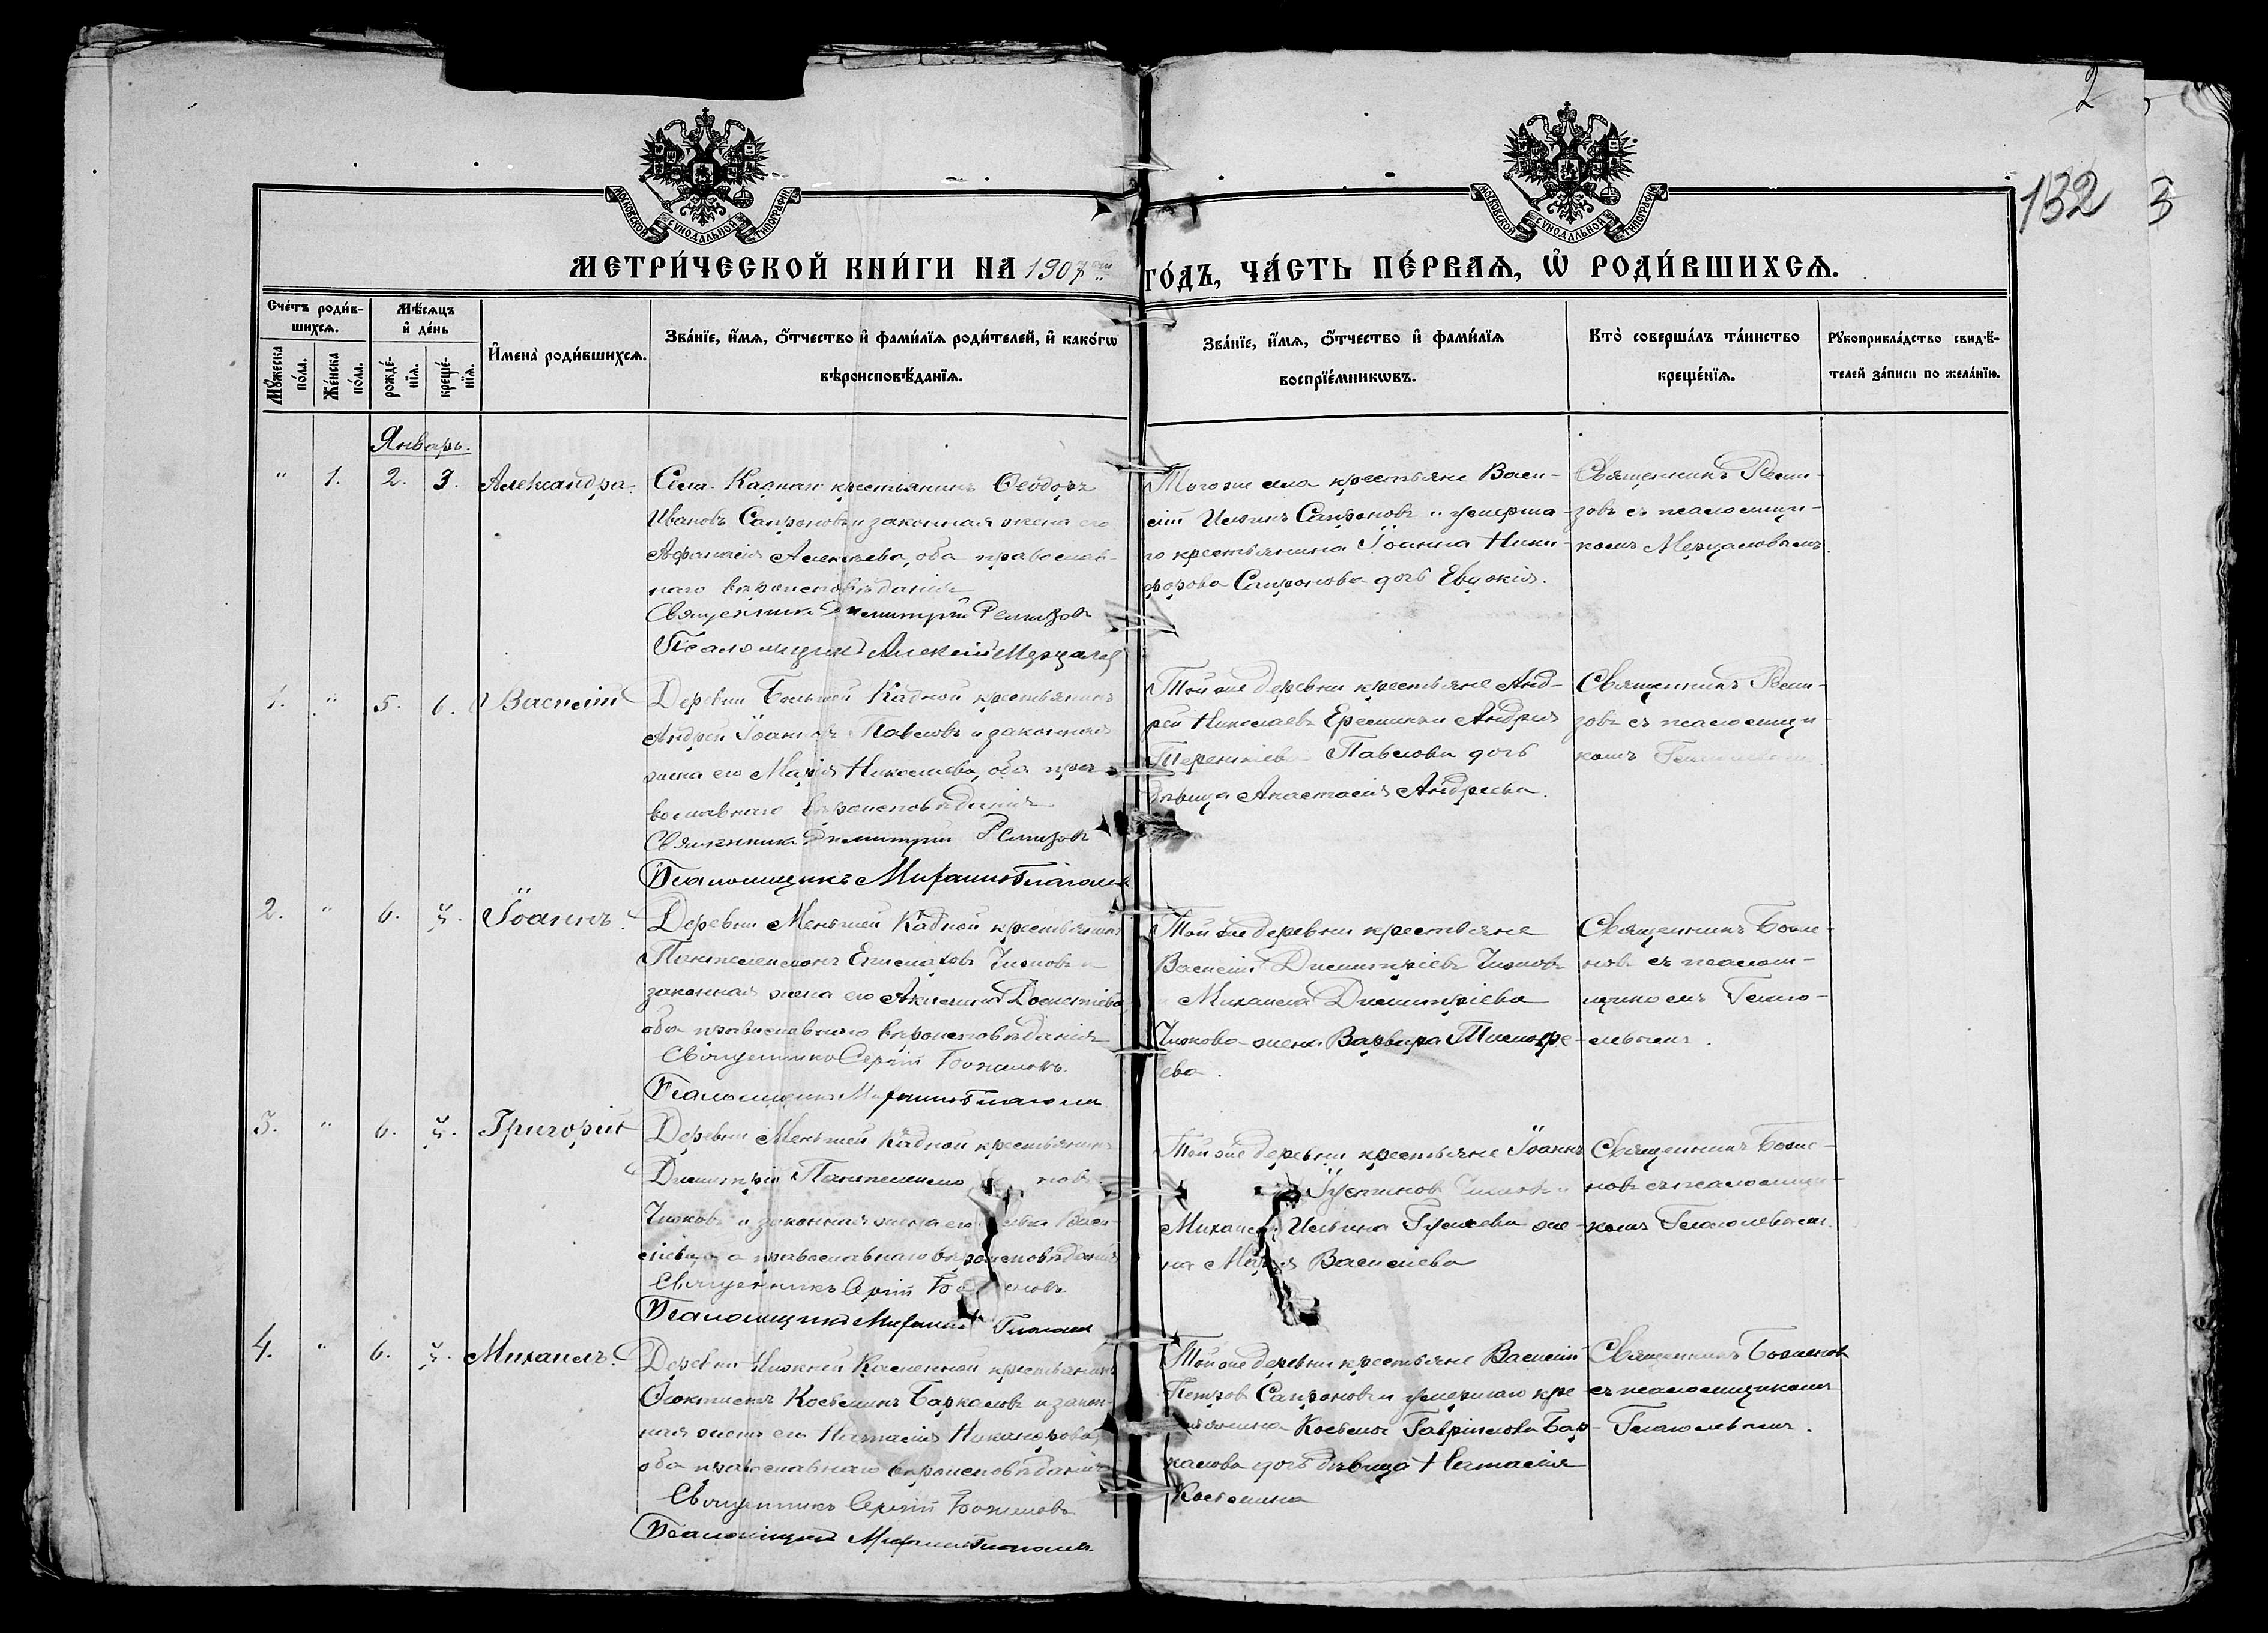 2
132 3
МОСКОВСКОЙ СѴНОДАЛЬНОЙ ТИПОГРАФІИ
МОСКОВСКОЙ СѴНОДАЛЬНОЙ ТИПОГРАФІИ
МЕТРИ́ЧЕСКОЙ КНИ́ГИ НА 1907 ГО́ДЪ, ЧА́СТЬ ПЕ́РВАѦ, Ѡ҆ РОДИ́ВШИХСѦ.
Сче́тъ роди́в-
шихсѧ.
Мꙋ́жеска по́ла.
Же́нска по́ла.
Мѣ́сѧцъ
и҆ де́нь
рожде́-
нїѧ.
креще́-
нїѧ.
И҆мена̀ роди́вшихсѧ.
Зва́нїе, и҆́мѧ, ѻ҆́тчество и҆ фами́лїѧ роди́телей, и҆ како́гѡ
вѣроисповѣ́данїѧ.
Зва́нїе, и҆́мѧ, ѻ҆́тчество и҆ фами́лїѧ
воспрїе́мникѡвъ.
Кто̀ соверша́лъ та́инство
креще́нїѧ.
Рꙋкоприкла́дство свидѣ́-
телей за́писи по жела́нїю.
Январь.
" 1. 2. 3. Александра.
Села крестьянинъ Ѳеодоръ
Ивановъ Сапроновъ и законная жена его
Алексѣева, оба православ-
наго вѣроисповѣданія
Священникъ Димитрій Ремизовъ
Псаломщикъ Алексій Мерцалов
Того же села крестьяне Васи-
лій Сапроновъ и умерша-
го крестьянина Іоанна Ники-
форова Сапронова дочь Евдокія.
Священникъ Реми-
зовъ съ псаломщи-
комъ Мерцаловымъ.
1. " 5. 6. Василій
Деревни Большой Кадной крестьянинъ
Андрей Павловъ и законная
жена его Марія Николаева, оба пра-
вославнаго вѣроисповѣданія
Священникъ Димитрій Ремизовъ
Псаломщикъ
Той же деревни крестьяне Анд-
рей Николаевъ и Андрея
Терентіева Павлова дочь
дѣвица Анастасія Андреева.
Священникъ Реми-
зовъ съ псаломщи-
комъ
2. " 6. Іоаннъ.
Деревни Меньшей Кадной крестьянинъ
Пантелеимонъ Чижовъ и
законная жена его Акилина
оба православнаго вѣроисповѣданія
Священникъ Сергій Боженовъ.
Псаломщикъ
Той же деревни крестьяне
Василій Димитріевъ Чижовъ
и Михаила Димитріева
Чижова жена Варвара Тимофе-
ева.
Священникъ Боже-
новъ съ псалом-
щикомъ Глаго-
левымъ.
3. " 6. Григорій
Деревни Меньшей Кадной крестьянинъ
Димитрій новъ
Чижовъ и законная жена его Васи-
православнаго вѣроисповѣданія
Священникъ Сергій
Псаломщикъ
Той же деревни крестьяне Іоаннъ
Чижовъ и
Михаила Ильина же-
на Марія Васильева
Священникъ Боже-
новъ съ псаломщи-
комъ Глаголевымъ.
4. " 6. Михаилъ.
Деревни Нижней крестьянинъ
Ѳеоктистъ Косьминъ Баркаловъ и закон-
ная жена его Наталія Никанорова,
оба православнаго вѣроисповѣданія
Священникъ Сергій Боженовъ
Псаломщикъ
Той же деревни крестьяне Василій
Петровъ Сапроновъ и умершаго кре-
стьянина Косьмы Гавріилова Бар-
калова дочь дѣвица Наталія
Косьмина
Священникъ Боженовъ
съ псаломщикомъ
Глаголевымъ.